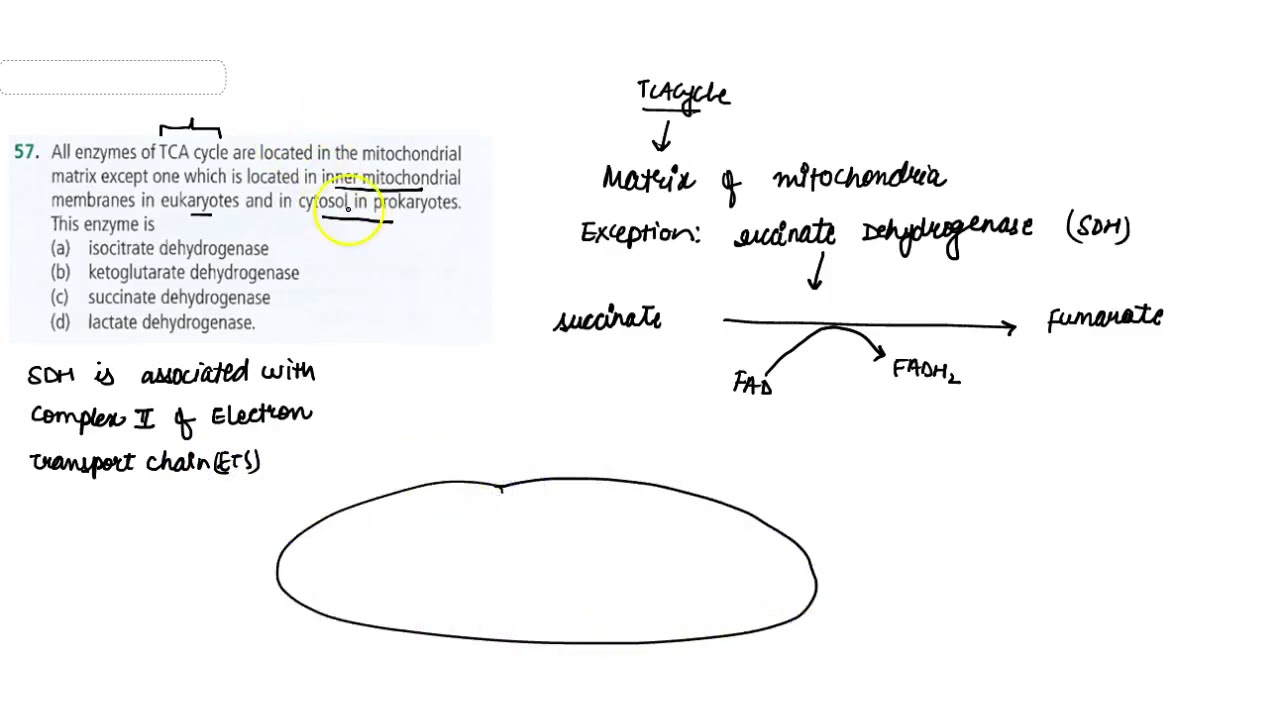 57. All enzymes of TCA cycle are located in the mitochondrial
matrix except one which is located in inner mitochondrial
membranes in eukaryotes and in cytosol in prokaryotes.
This enzyme is
(a) isocitrate dehydrogenase
(b) ketoglutarate dehydrogenase
(c) succinate dehydrogenase
(d) lactate dehydrogenase.
SDH is associated with
Complex II of Electron
transport chain(ETS)
TCA Cycle
Matrix of mitochondria
Exception: succinate Dehydrogenase (SDH)
succinate Fumarate
FAD FADH2